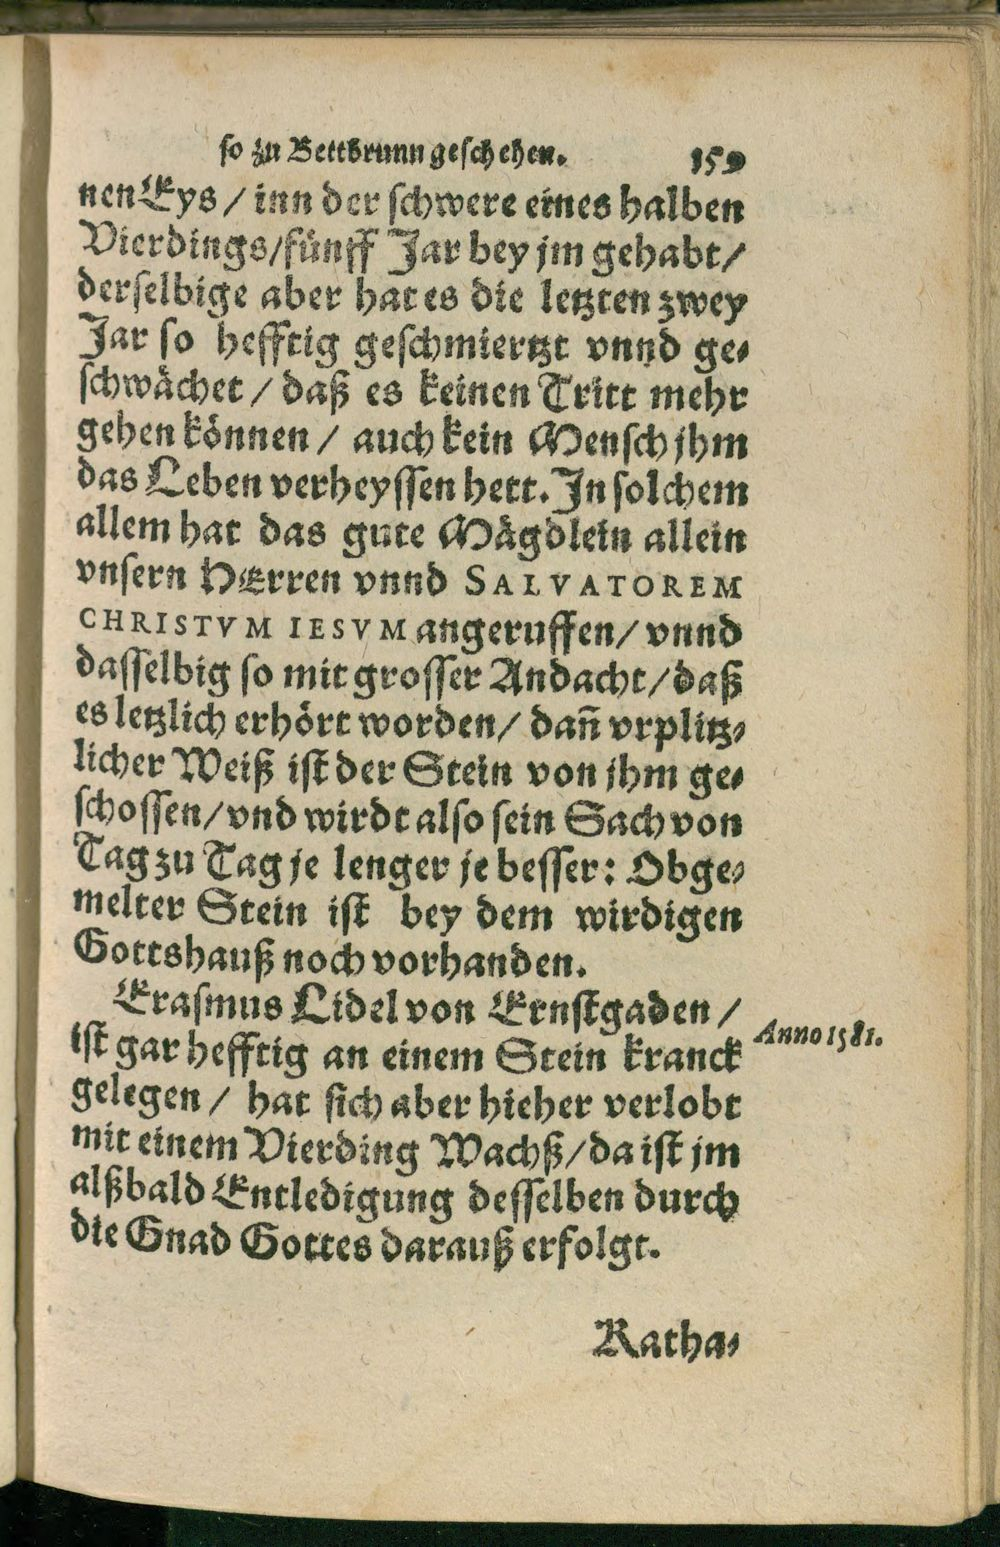 so zu Bettbrunn geschehen. 159
nen Eys / inn der schwere eines halben
Vierdings/fünff Jar bey jm gehabt/
derselbige aber hat es die letzten zwey
Jar so hefftig geschmiertzt vnnd ge-
schwächet / daß es keinen Tritt mehr
gehen können / auch kein Mensch jhm
das Leben verheyssen hett. In solchem
allem hat das gute Mägdlein allein
vnsern HErren vnnd SALVATOREM
CHRISTVM IESVM angeruffen/ vnnd
dasselbig so mit grosser Andacht/daß
es letzlich erhört worden/ dañ vrplitz-
licher Weiß ist der Stein von jhm ge-
schossen/vnd wirdt also sein Sach von
Tag zu Tag je lenger je besser: Obge-
melter Stein ist bey dem wirdigen
Gottshauß noch vorhanden.
Erasmus Lidel von Ernstgaden /
Anno 1581.
ist gar hefftig an einem Stein kranck
gelegen / hat sich aber hieher verlobt
mit einem Vierding Wachß/da ist jm
alßbald Entledigung desselben durch
die Gnad Gottes darauß erfolgt.
Katha-